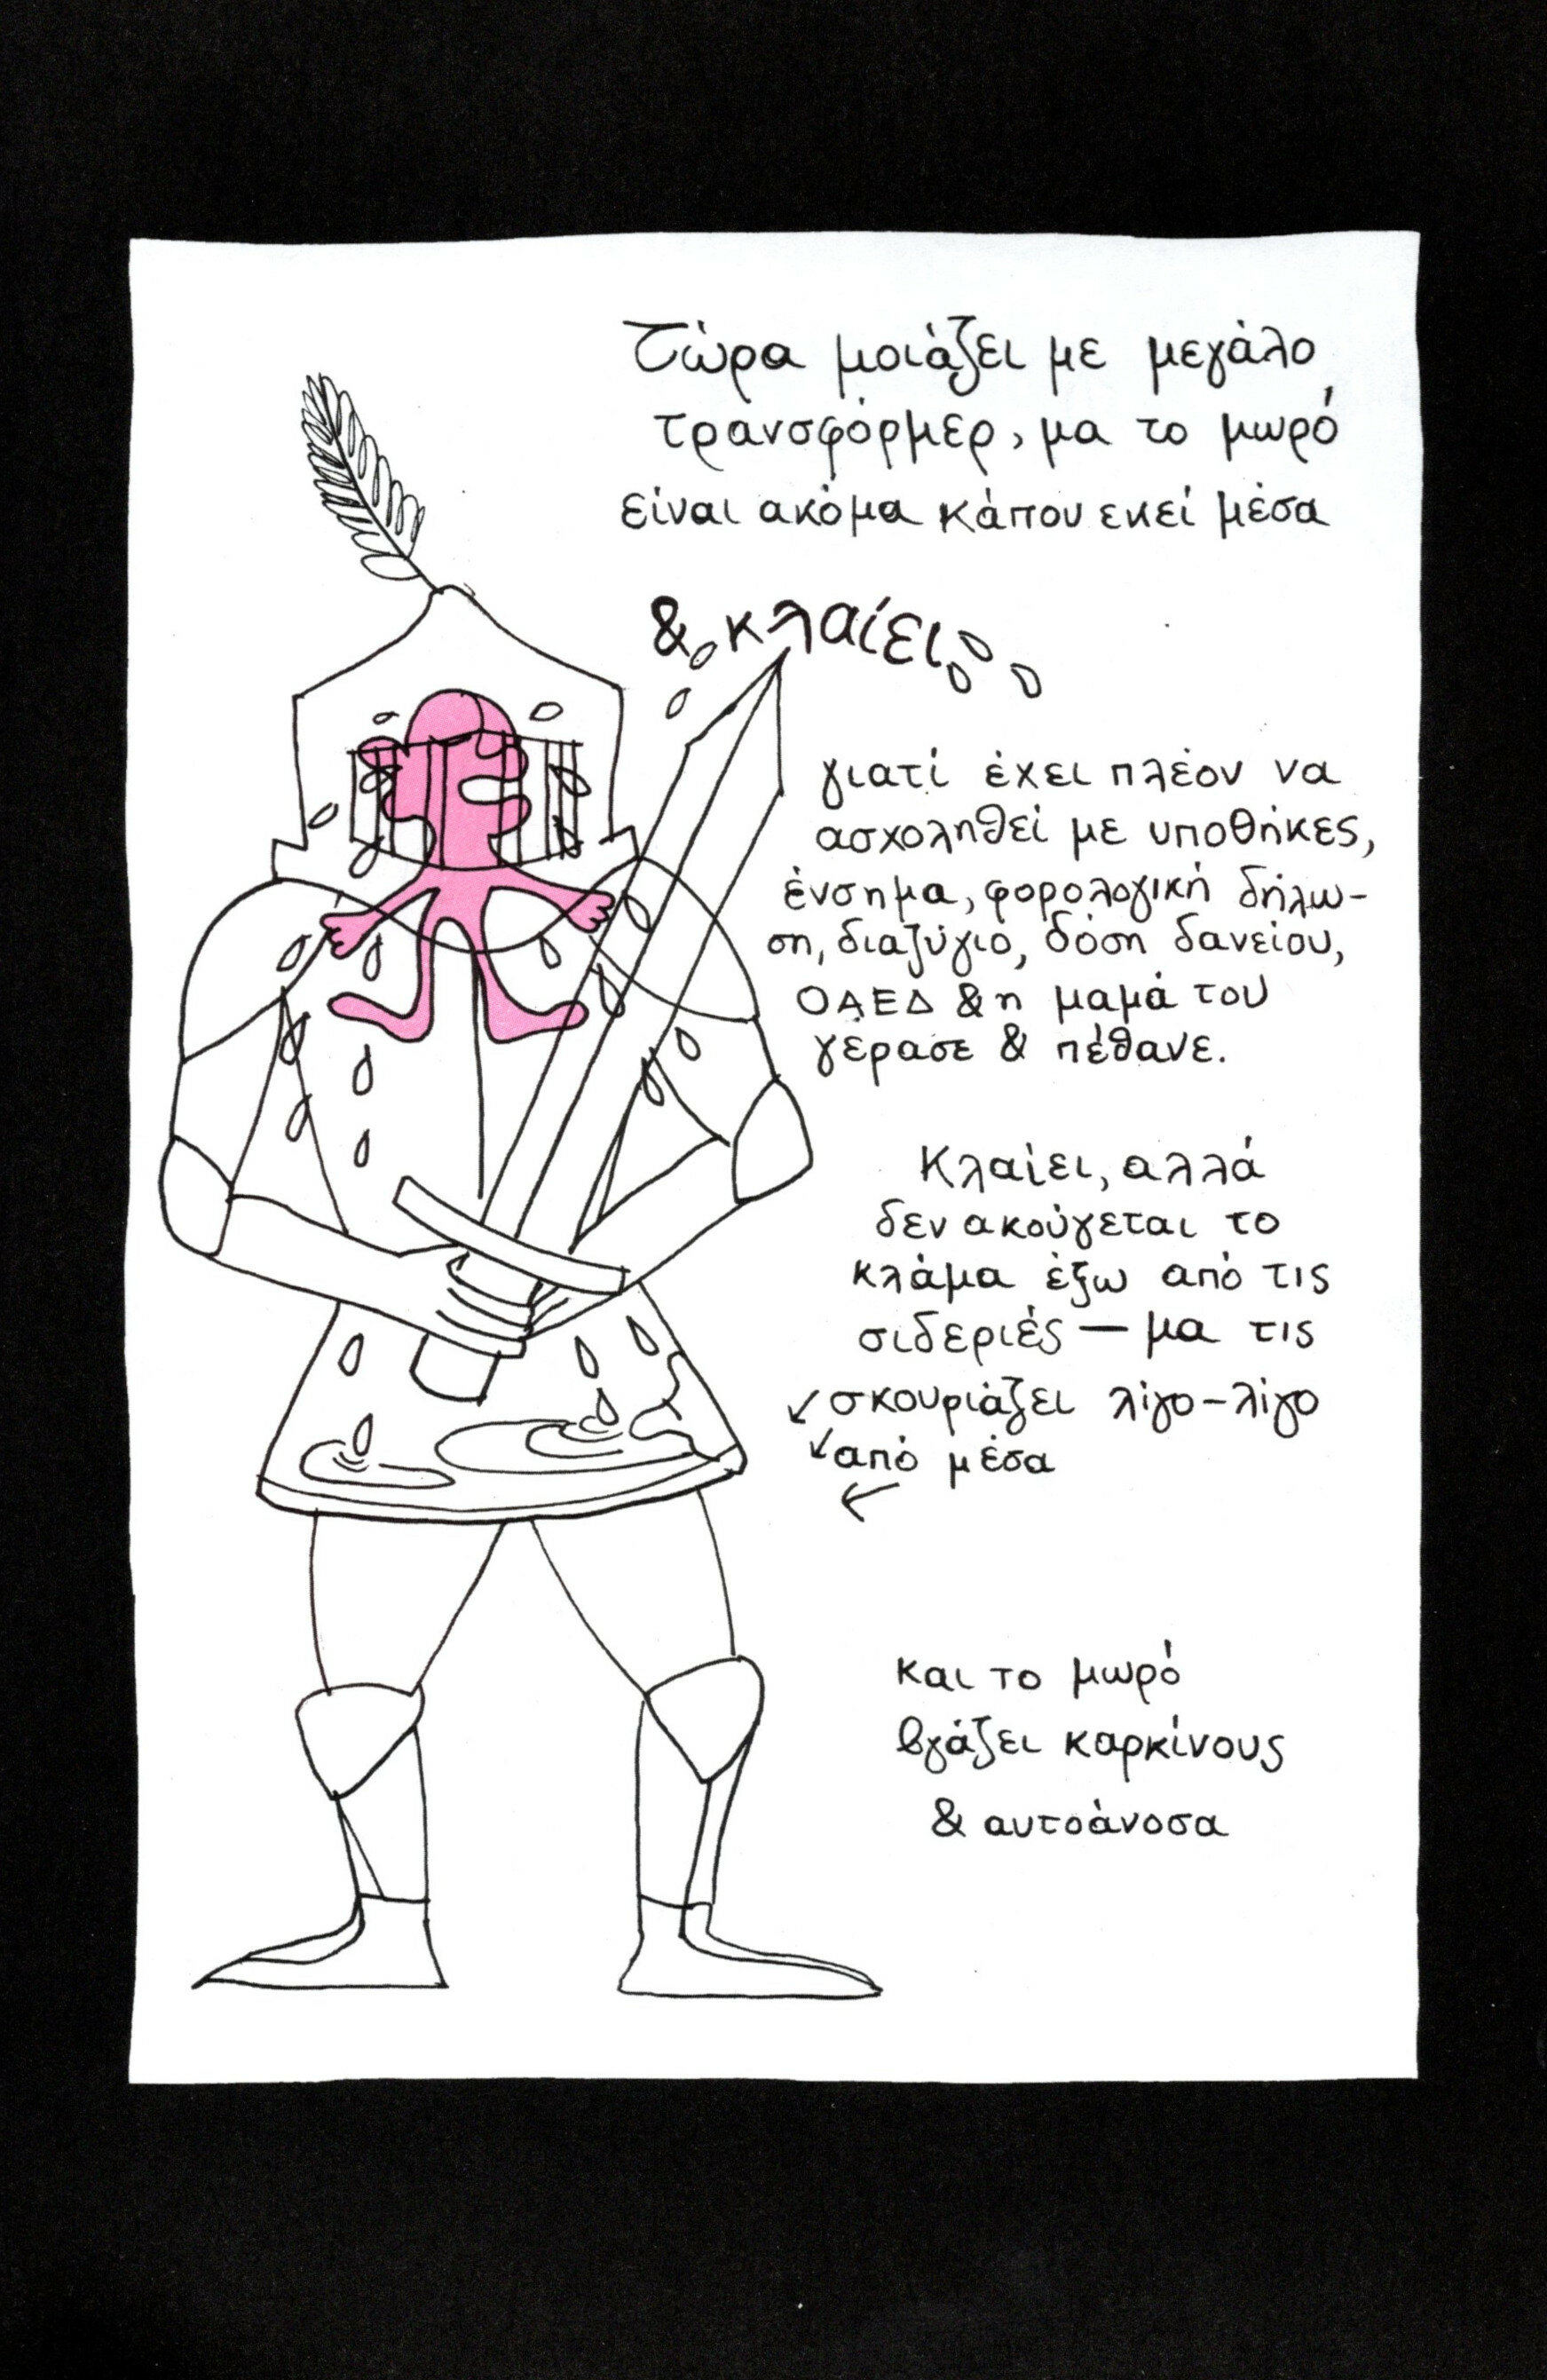 Τώρα μοιάζει με μεγάλο
τρανσφόρμερ, μα το μωρό
είναι ακόμα κάπου εκεί μέσα
& κλαίει
γιατί έχει πλέον να
ασχοληθεί με υποθήκες,
ένσημα, φορολογική δήλω-
ση, διαζύγιο, δόση δανείου,
ΟΑΕΔ & η μαμά του
γέρασε & πέθανε.
Κλαίει, αλλά
δεν ακούγεται το
κλάμα έξω από τις
σιδεριές — μα τις
σκουριάζει λίγο-λίγο
από μέσα
και το μωρό
βγάζει καρκίνους
& αυτοάνοσα